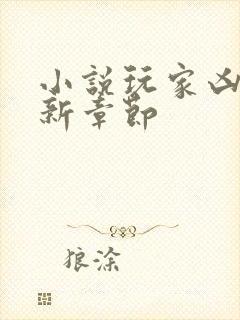 小說玩家凶
新章節
狼涂